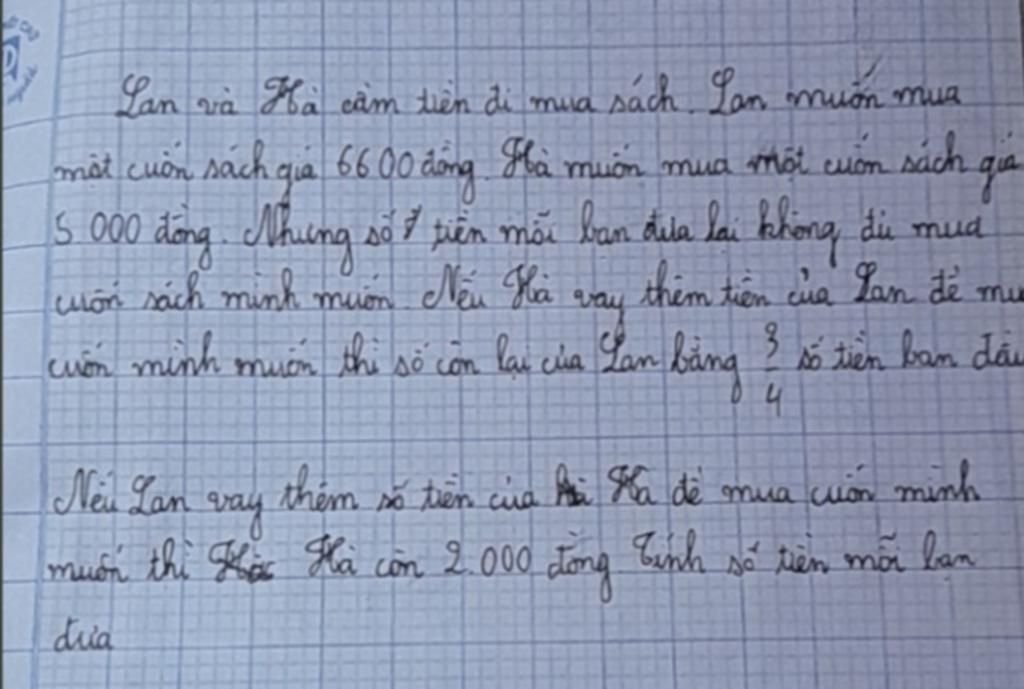 Lan và Hà cầm tiền đi mua sách. Lan muốn mua
một cuốn sách giá 6600 đồng. Hà muốn mua một cuốn sách giá
5.000 đồng. Nhưng số tiền mỗi bạn đưa lại không đủ mua
cuốn sách mình muốn. Nếu Hà vay thêm tiền của Lan để mu
cuốn mình muốn thì số còn lại của Lan bằng 3/4 số tiền ban đầu
Nếu Lan vay thêm số tiền của Hà để mua cuốn mình
muốn thì Hà còn 2.000 đồng Tính số tiền mỗi bạn
đưa